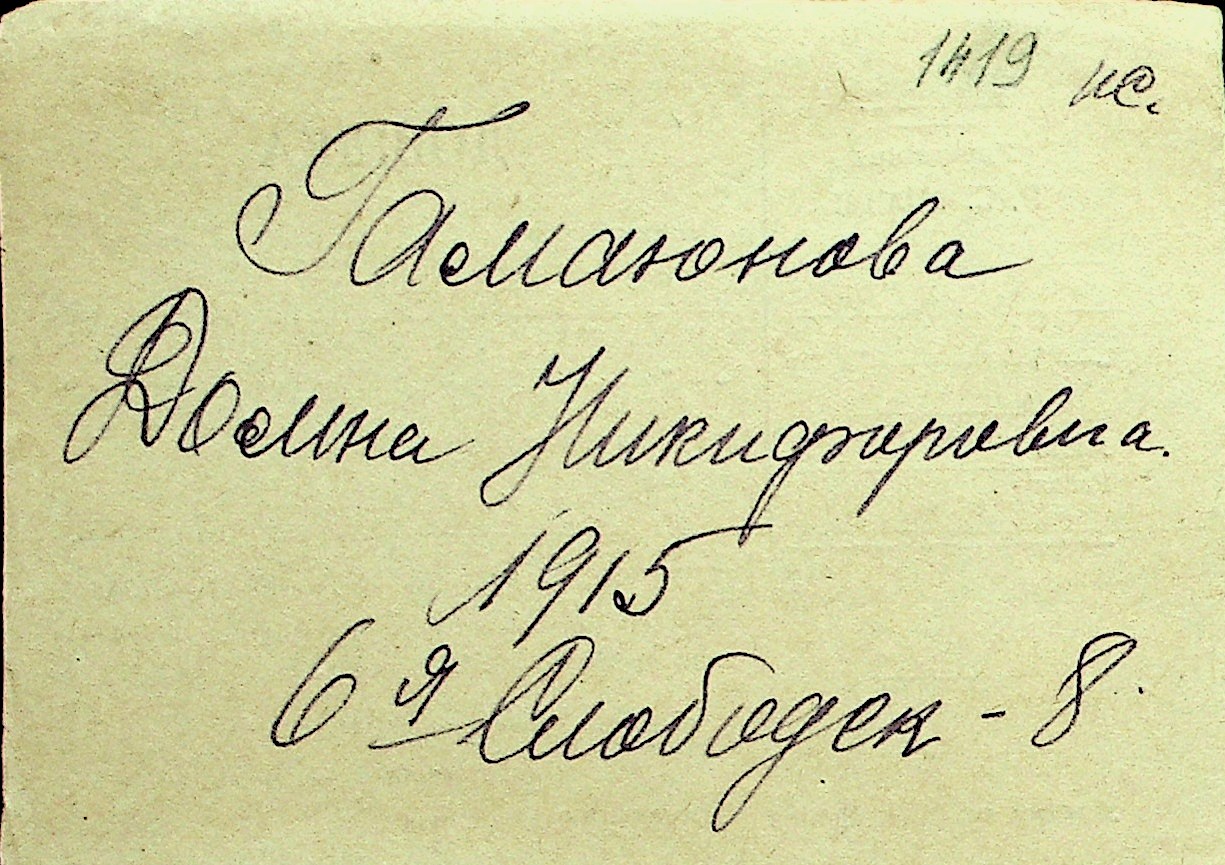 1419 нс.
Гамаюнова
Домна Никифоровна.
1915
6я Слободск - 8.